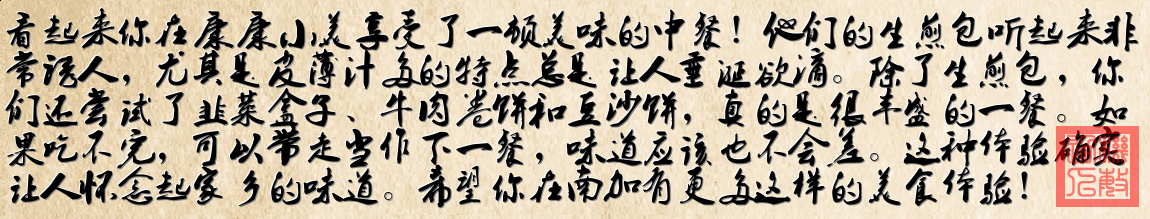 看起来你在康康小美享受了一顿美味的中餐！他们的生煎包听起来非
常诱人，尤其是皮薄汁多的特点总是让人垂涎欲滴。除了生煎包，你
们还尝试了韭菜盒子、牛肉卷饼和豆沙饼，真的是很丰盛的一餐。如
果吃不完，可以带走当作下一餐，味道应该也不会差。这种体验确实
让人怀念起家乡的味道。希望你在南加有更多这样的美食体验！